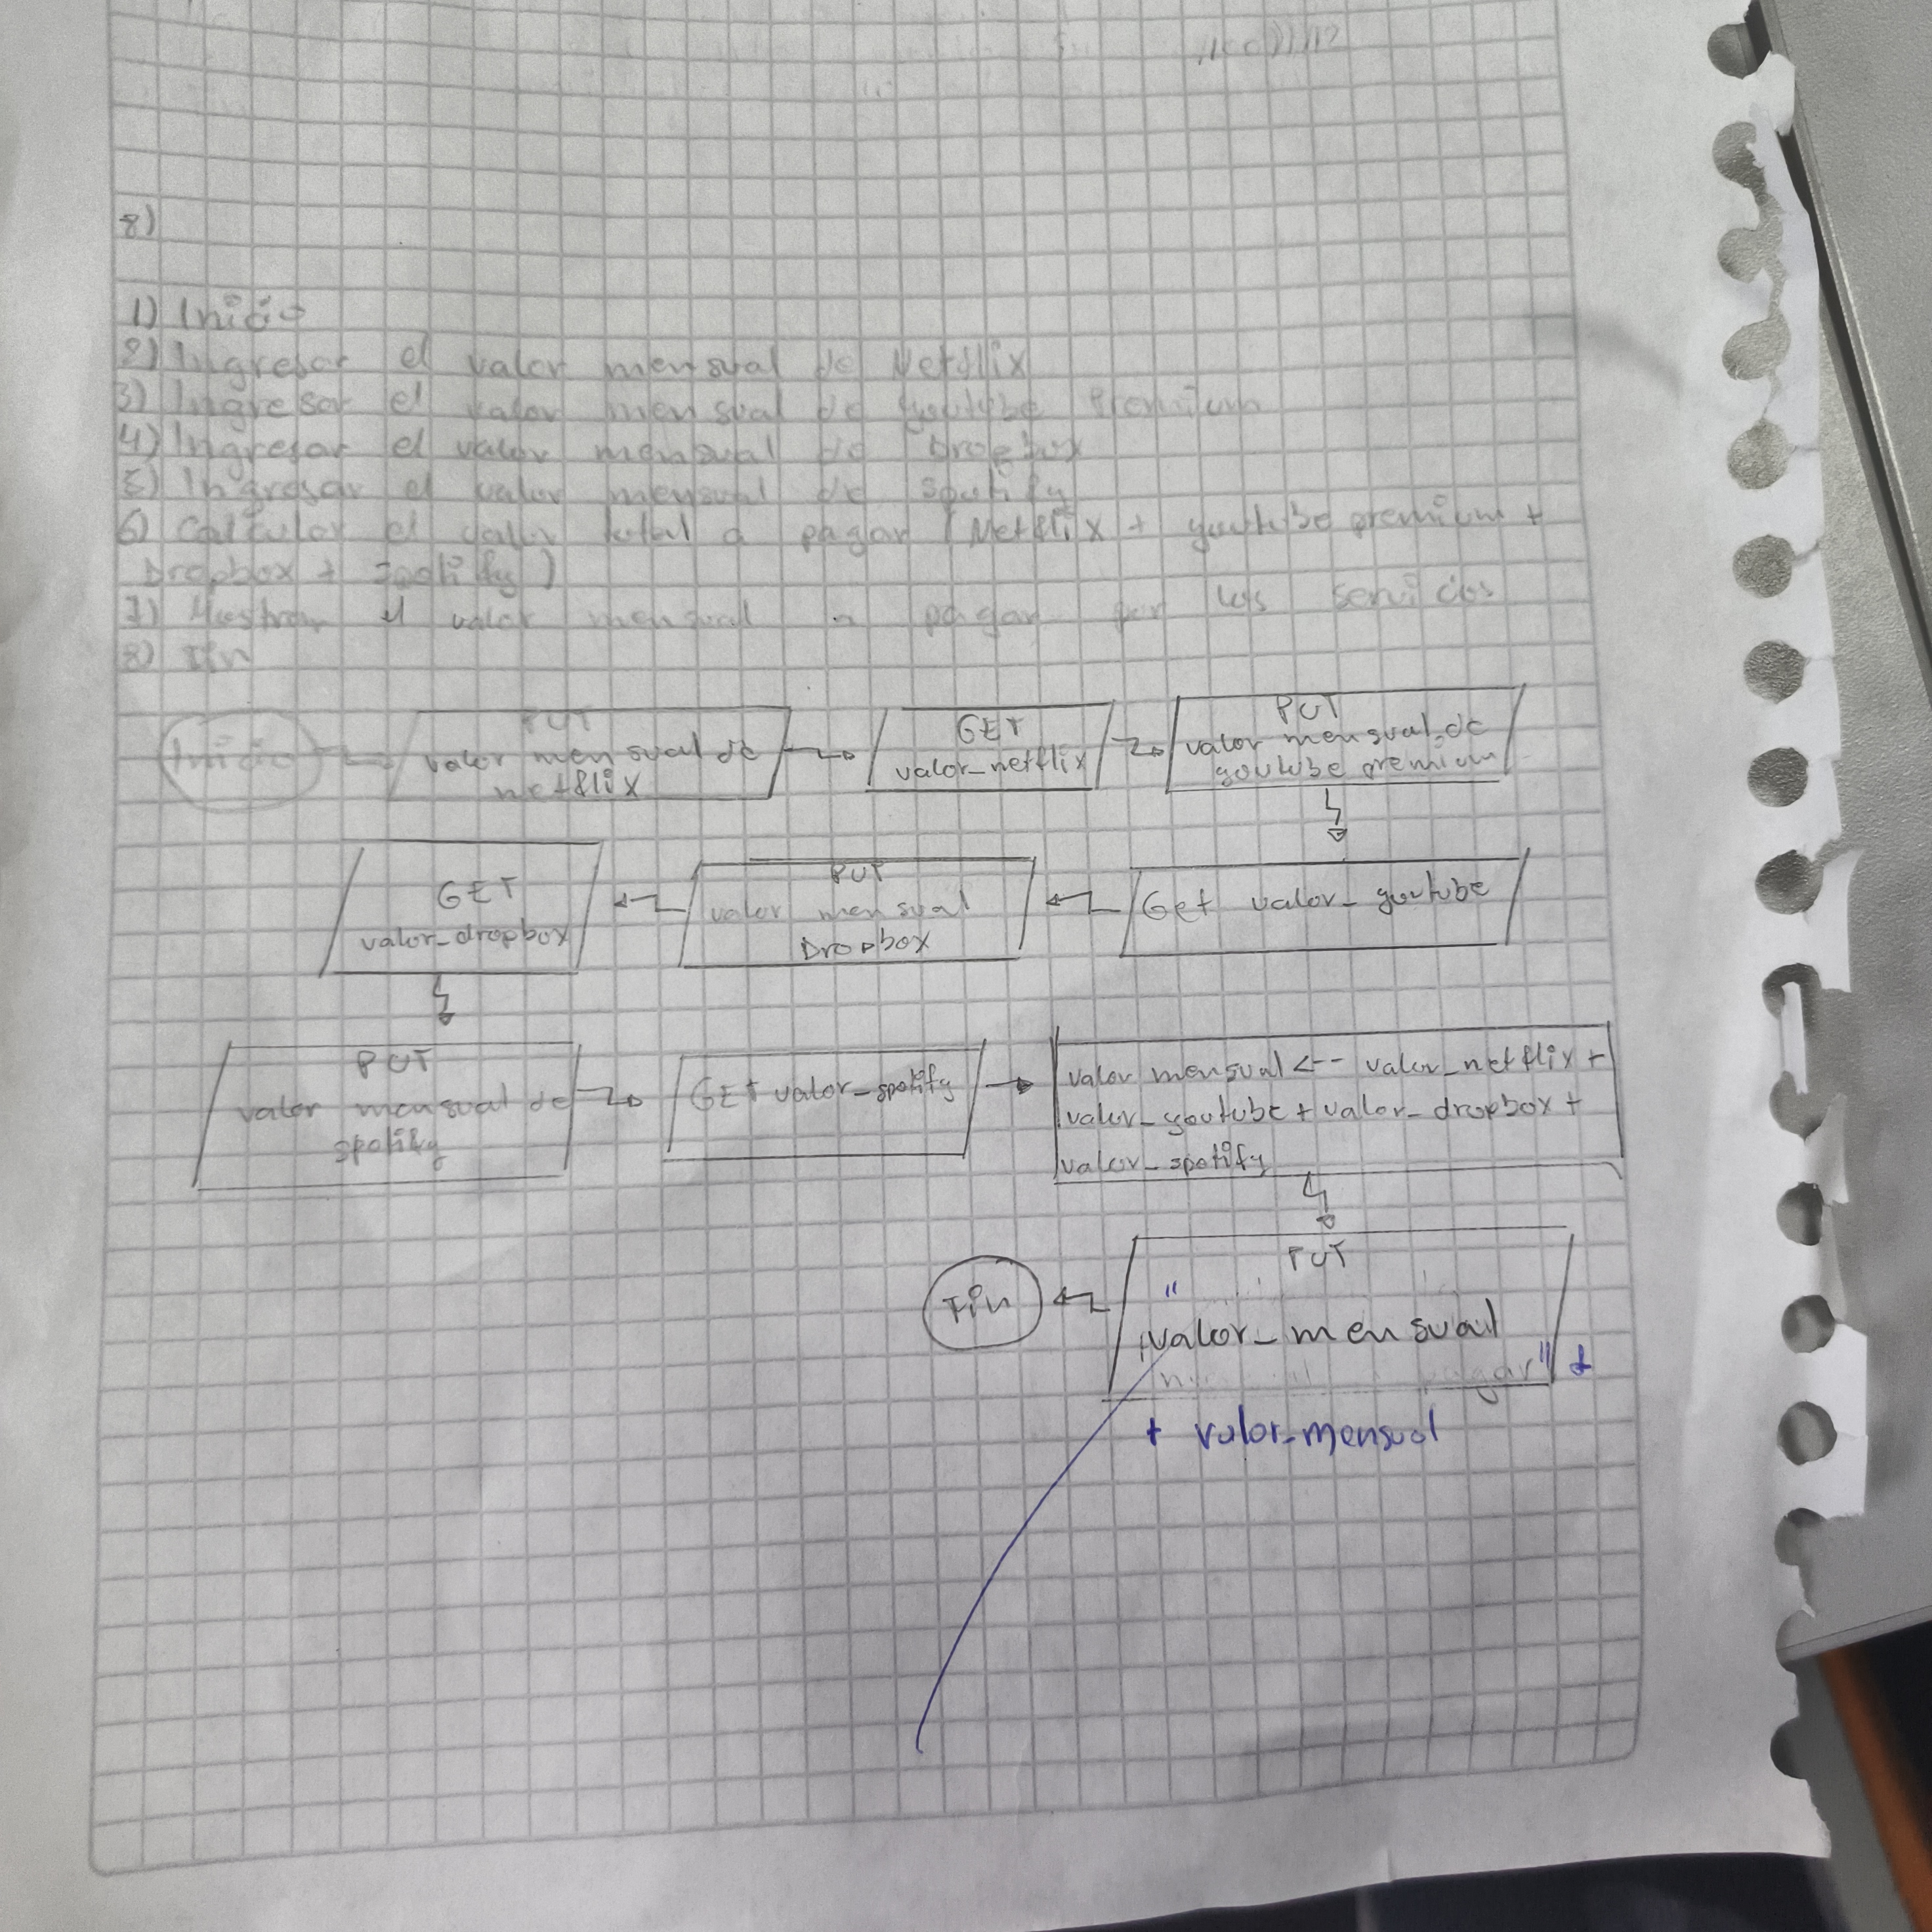 8)
1) Inicio
2) Ingresar el valor mensual de Netflix
3) Ingresar el valor mensual de youtube Premium
4) Ingresar el valor mensual de Dropbox
5) Ingresar el valor mensual de Spotify
6) Calcular el valor total a pagar (Netflix + youtube premium +
Dropbox + Spotify)
7) Mostrar el valor mensual a pagar por los servicios
8) Fin
Inicio
PUT
valor mensual de
netflix
GET
valor_netflix
PUT
valor mensual de
youtube premium
Get valor_youtube
PUT
valor mensual
Dropbox
GET
valor_dropbox
PUT
valor mensual de
spotify
GET valor_spotify
valor mensual <-- valor_netflix +
valor_youtube + valor_dropbox +
valor_spotify
PUT
"
valor_mensual
pagar" +
+ valor_mensual
Fin